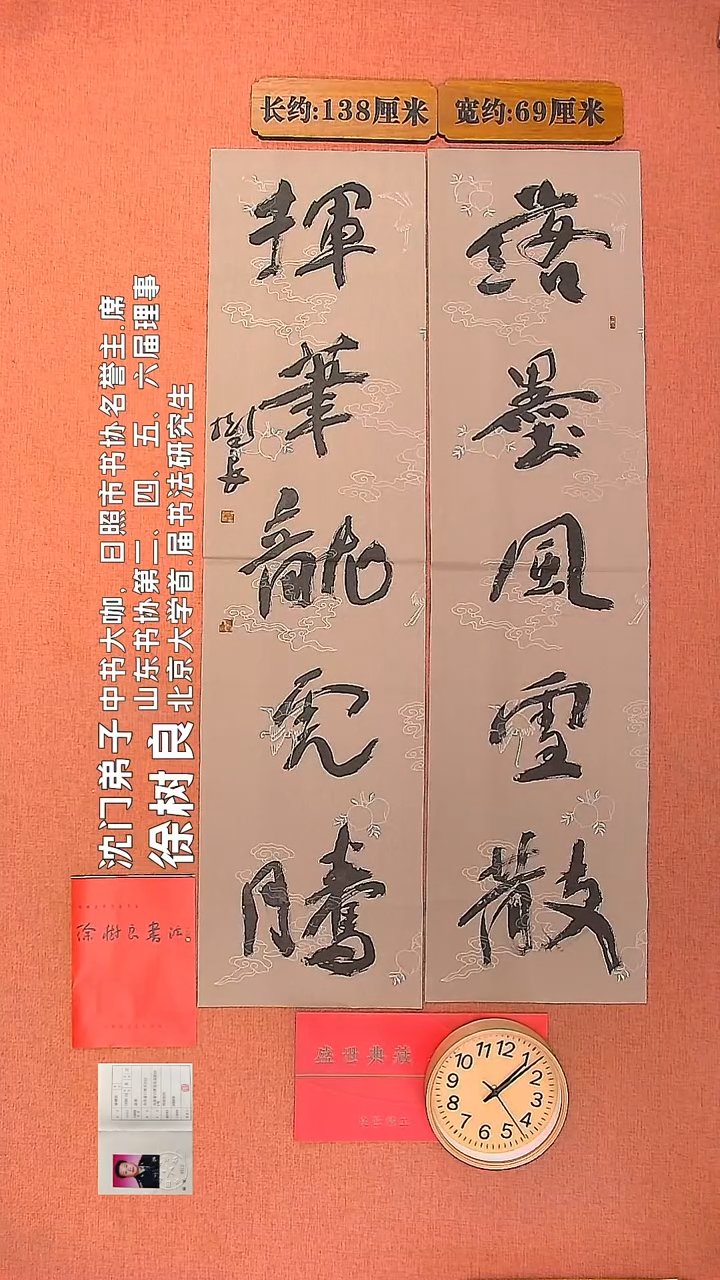 长约:138厘米
宽约:69厘米
落墨风雪散
揮筆龍虎騰
樹良
沈门弟子 中书大咖,日照市书协名誉主.席
山东书协第二、四、五、六届理事
徐树良 北京大学首.届书法研究生
徐樹良書法
盛世典藏
11 12 1
10 2
9
8 4
7 6 5